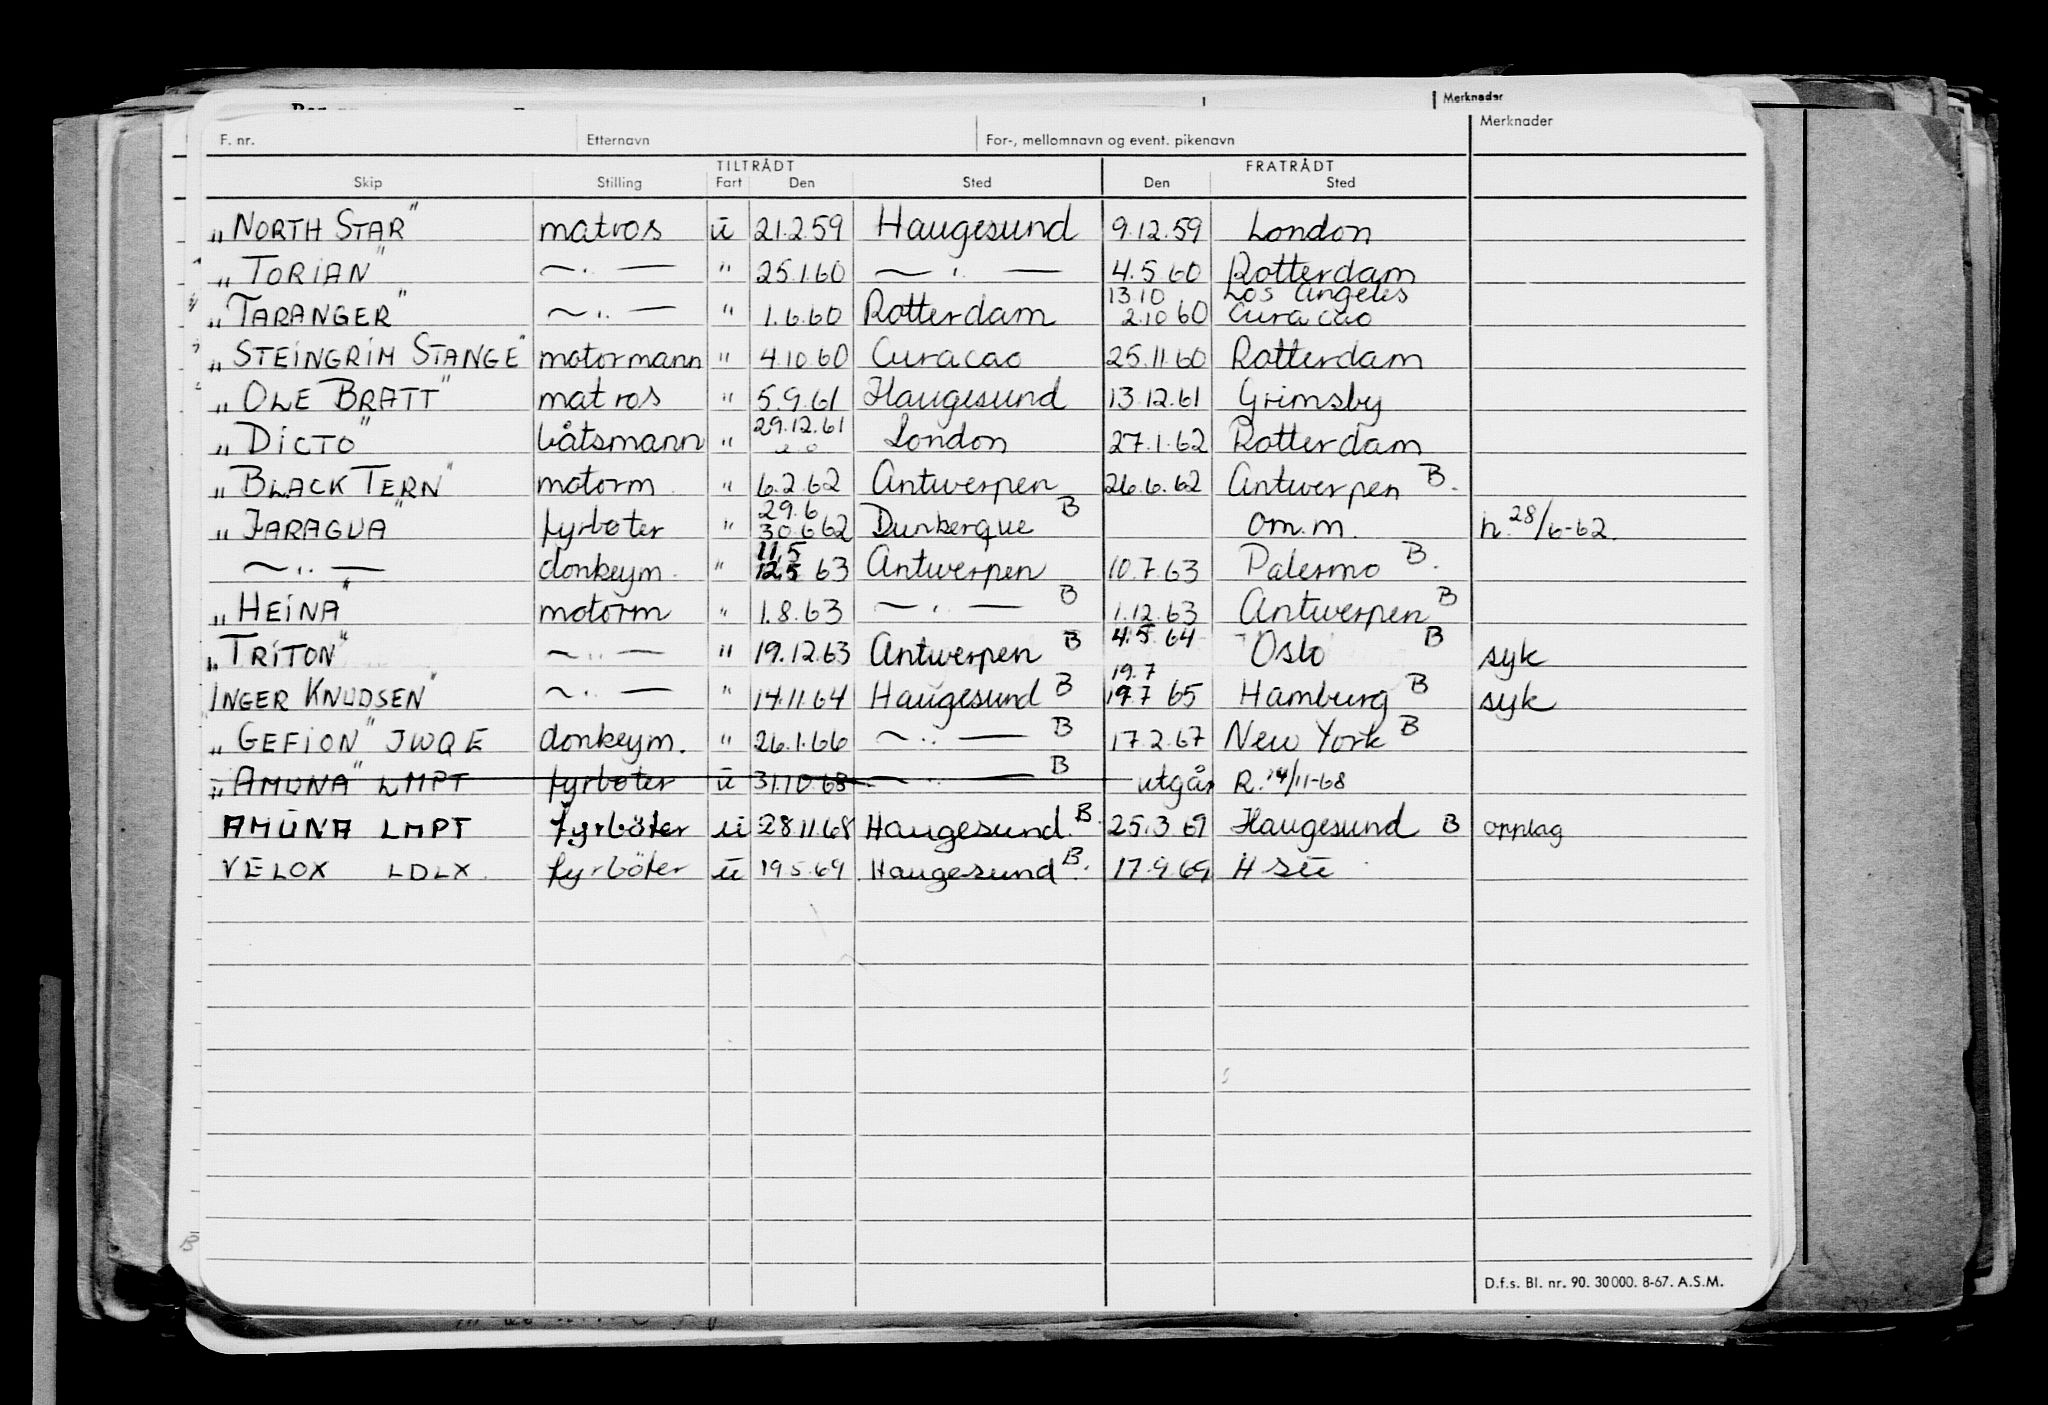 Merknader
F. nr. Etternavn For-, mellomnavn og event. pikenavn Merknader
TILTRÅDT FRATRÅDT
Skip Stilling Fart Den Sted Den Sted
„NORTH STAR" matros ū 21.2.59 Haugesund 9.12.59 London
„TORIAN" ~ . . — " 25.1.60 ~ . . — 4.5.60 Rotterdam
13.10 Los Angeles
„TARANGER" ~ . . — " 1.6.60 Rotterdam 2.10 60 Curacao
„STEINGRIM STANGE" motormann " 4.10.60 Curacao 25.11.60 Rotterdam
„OLE BRATT" matros " 5.9.61 Haugesund 13.12.61 Grimsby
29.12.61
„DICTO" båtsmann " London 27.1.62 Rotterdam
„BLACK TERN" motorm " 6.2.62 Antwerpen 26.6.62 Antwerpen B.
29.6
„JARAGUA" fyrbøter " 30.6 62 Dunkerque B om.m. h. 28/6-62.
11.5
~ . . — donkeym. " 12.5 63 Antwerpen 10.7.63 Palermo B.
„HEINA" motorm " 1.8.63 ~ . . — B 1.12.63 Antwerpen B
„TRITON" ~ . . — " 19.12.63 Antwerpen B 4.5.64 Oslo B syk
19.7
INGER KNUDSEN" ~ . . — " 14.11.64 Haugesund B 19.7 65 Hamburg B syk
„GEFION" JWQE donkeym. " 26.1.66 ~ . . — B 17.2.67 New York B
„AMUNA" LMPT fyrbøter ū 31.10.68 ~ . . — B utgår R. 14/11-68
AMUNA LMPT fyrböter ū 28.11.68 Haugesund B. 25.3 69 Haugesund B opplag
VELOX LDLX. fyrböter ū 19.5.69 Haugesund B. 17.9.69 H
B
D.f.s. Bl. nr. 90. 30000. 8-67. A.S.M.